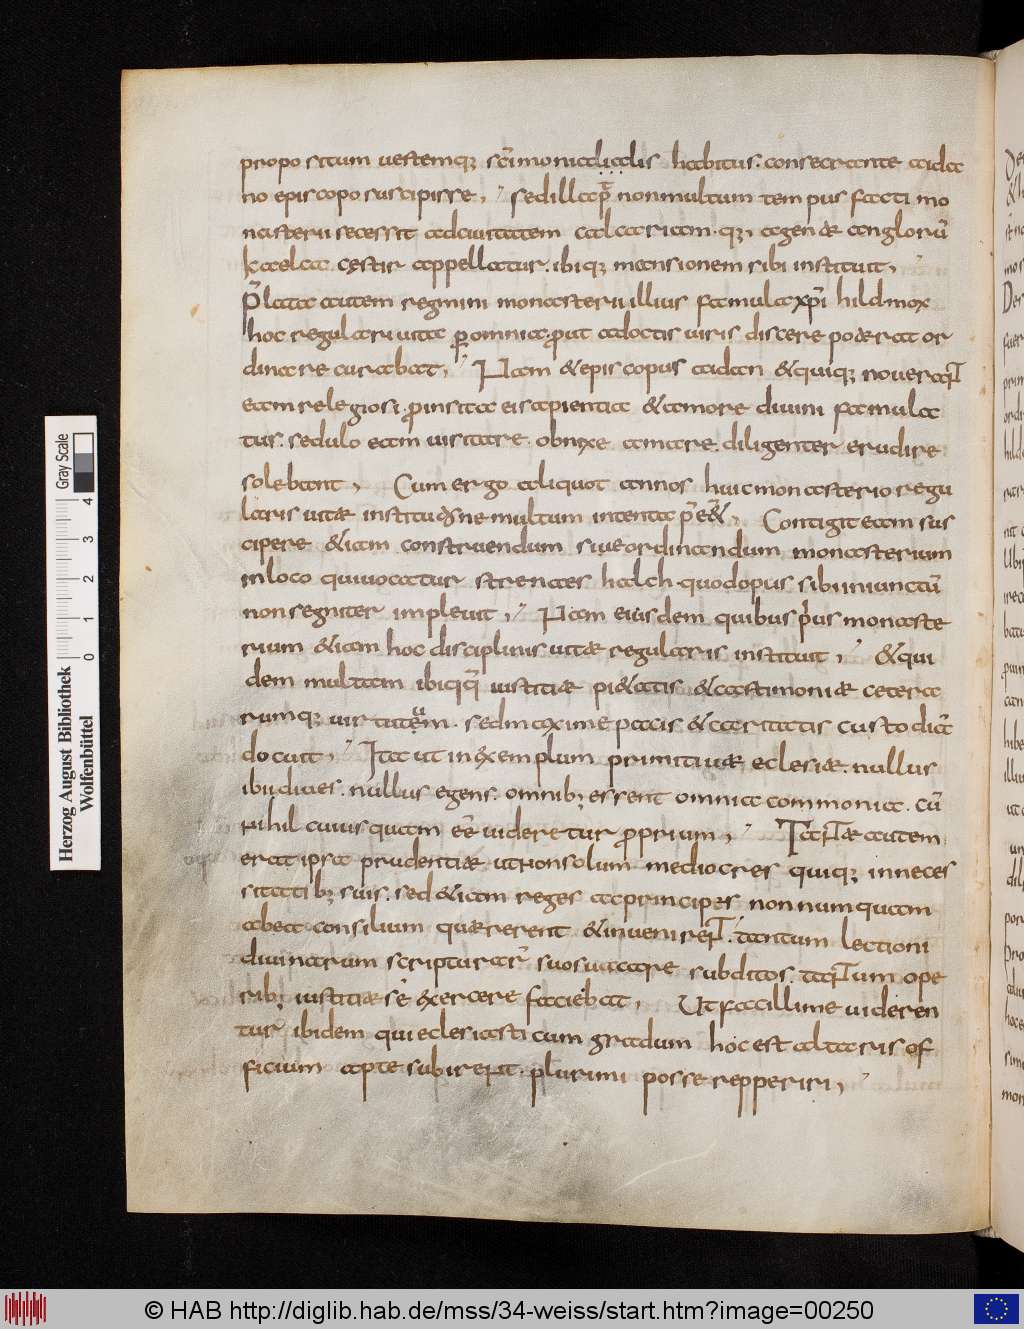 propositum uestemq; sc̄imonialis habitus. consecrante aida
no episcopo suscipisse, sed illa p̄ non multum tempus facti mo
nasterii secessit ad ciuitatem calcariam. q; a gente anglorū
kaelca cęstir appellatur. ibiq; mansionem sibi instituit,
P̄lata autem regmini monasterii illius famula xp̄i hild mox
hoc regulari uita ꝑ omnia. ꝓut a doctis uiris discere poterat or
dinare curabat, Nam & episcopus aidan & quiq; nouerant
eam relegiosi. ꝓ insita ei sapientia & amore diuini famula
tus. sedulo eam uisitare. obnixe amare. diligenter erudire
solebant, Cum ergo aliquot annos huic monasterio regu
laris uitæ institutione multum intenta p̄e&, Contigit eam sus
cipere &iam construendum siue ordinandum monasterium
in loco qui uocatur strenaes halch. quod opus sibi iniunctū
non segniter impleuit, Nam eiusdem quibus p̄us monaste
rium &iam hoc disciplinis uitæ regularis instituit, & qui
dem multam ibi iustitiæ pi&atis & castimoniæ cetera
rumq; uirtutum. sed maxime pacis & caritatis custodiā
docuit, Ita ut in exemplum primitiuæ eclesiæ. nullus
ibi diues. nullus egens. omnib; essent omnia commonia. cū
nihil cuiusquam eē uideretur ꝓprium, Tantæ autem
erat ipsa prudentiæ ut non solum mediocres quiq; in neces
sitatib; suis. sed &iam reges ac principes non numquam
ab ea consilium quærerent & inuenirent. tantum lectioni
diuinarum scripturar̄ suos uacare subditos. tantum ope
rib; iustitiæ sé exercere faciebat, Ut facillime uideren
tur ibidem qui eclesiasticum gradum hóc est altaris of
ficium apte subirent. plurimi posse repperiri,
Herzog August Bibliothek
Wolfenbüttel
Gray Scale
0 1 2 3 4
© HAB http://diglib.hab.de/mss/34-weiss/start.htm?image=00250